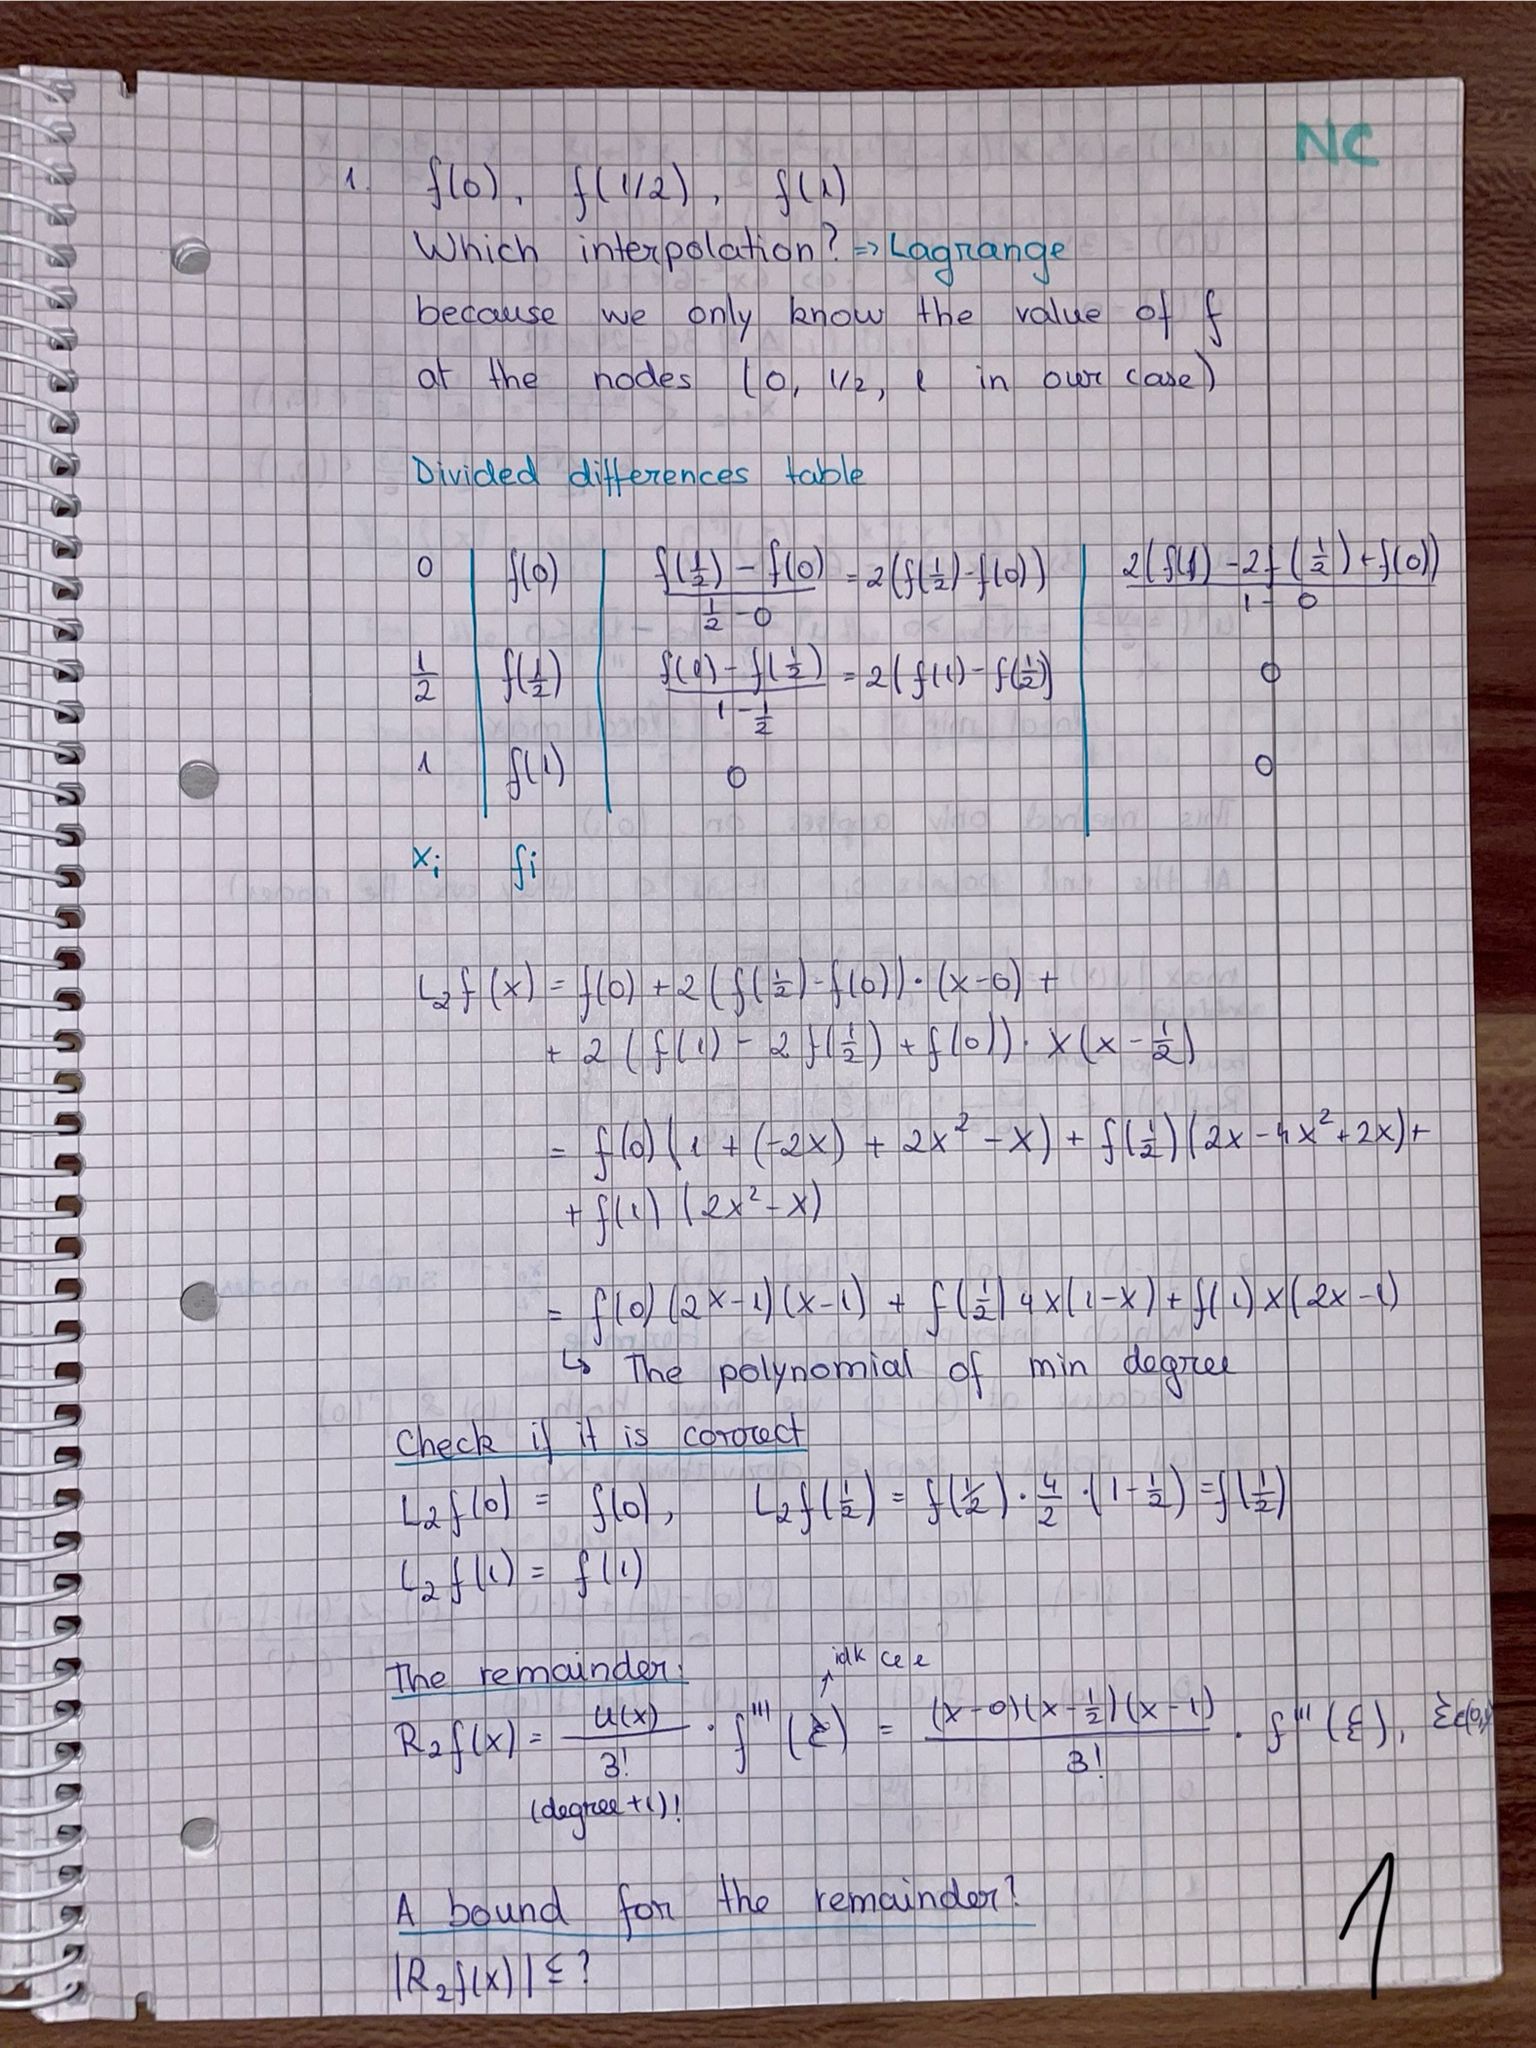 NC
1. f(0), f(1/2), f(1)
Which interpolation? => Lagrange
because we only know the value of f
at the nodes (0, 1/2, 1 in our case)
Divided differences table
0 | f(0) | (f(1/2) - f(0))/(1/2 - 0) = 2(f(1/2) - f(0)) | 2(f(1) - 2f(1/2) + f(0))/(1 - 0)
1/2 | f(1/2) | (f(1) - f(1/2))/(1 - 1/2) = 2(f(1) - f(1/2)) | 0
1 | f(1) | 0 | 0
xi fi
L₂f(x) = f(0) + 2(f(1/2) - f(0)) · (x-0) +
+ 2(f(1) - 2f(1/2) + f(0)) · x(x - 1/2)
= f(0)(1 + (-2x) + 2x² - x) + f(1/2)(2x - 4x² + 2x) +
+ f(1)(2x² - x)
= f(0)(2x-1)(x-1) + f(1/2)4x(1-x) + f(1)x(2x-1)
↳ The polynomial of min degree
Check if it is correct
L₂f(0) = f(0), L₂f(1/2) = f(1/2) · 4/2 · (1 - 1/2) = f(1/2)
L₂f(1) = f(1)
idk ce e
The remainder:
R₂f(x) = u(x)/3! · f'''(ξ) = (x-0)(x-1/2)(x-1)/3! · f'''(ξ),
(degree+1)!
A bound for the remainder?
|R₂f(x)| ≤ ?
1